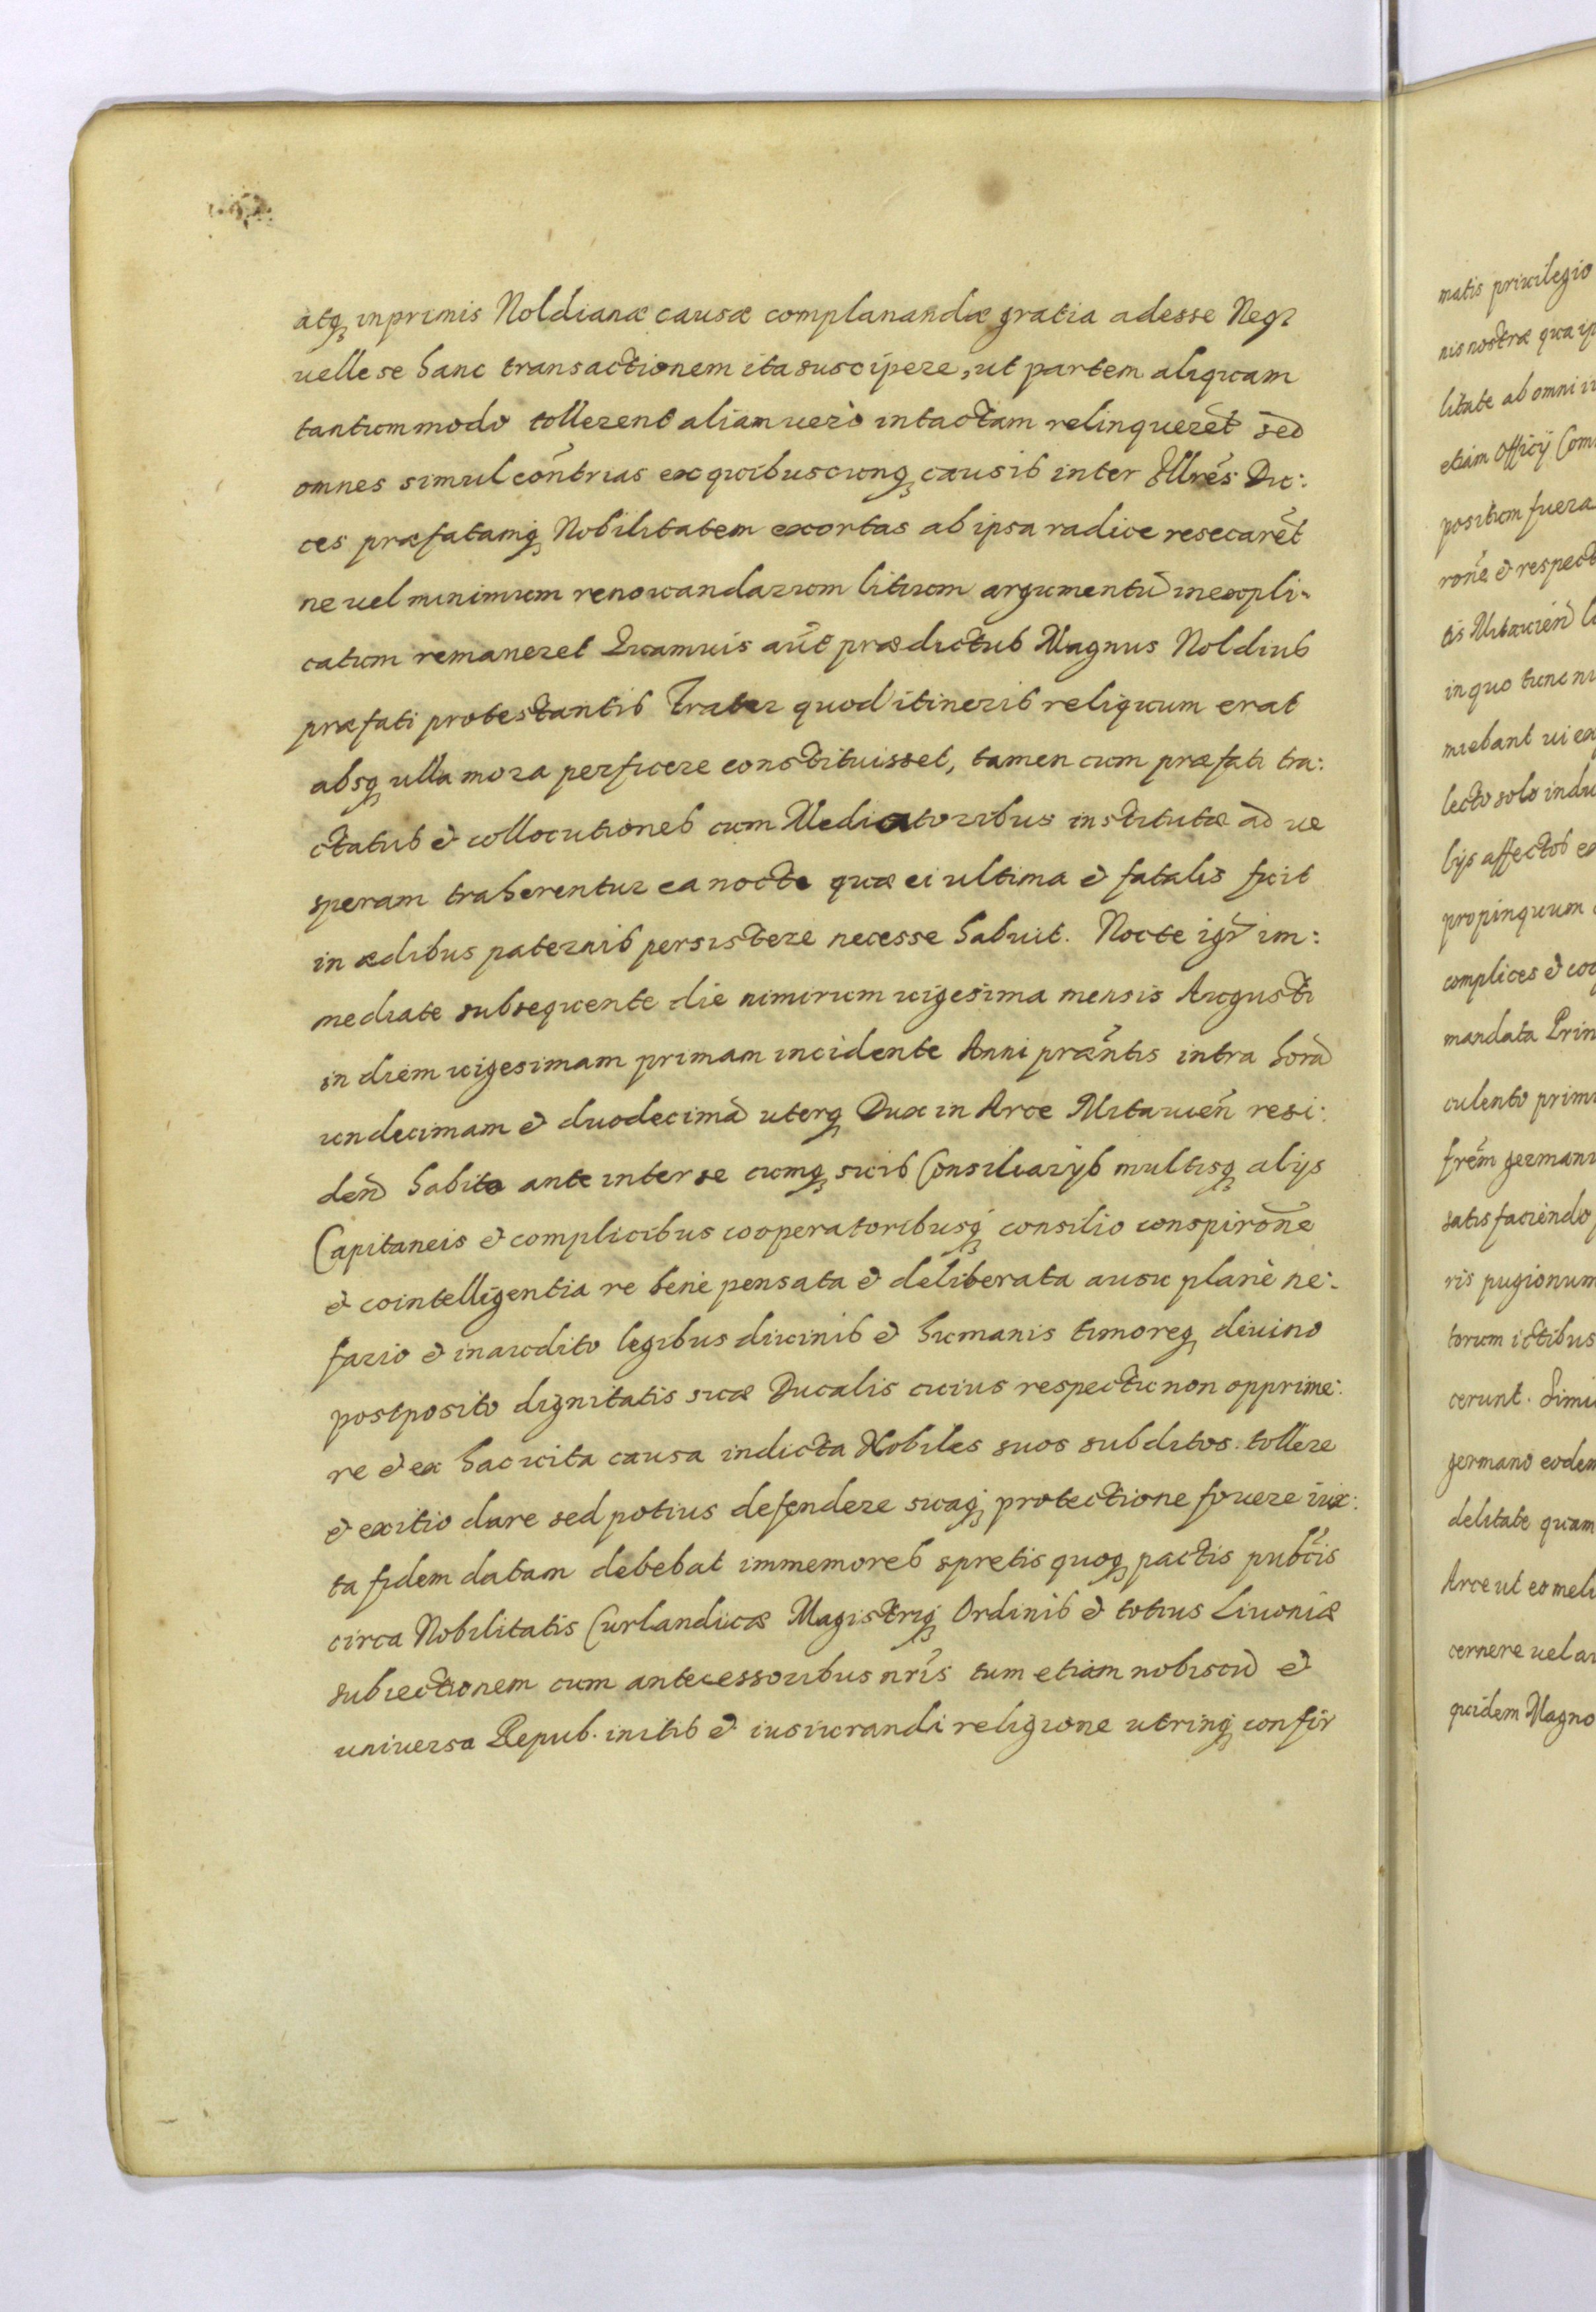 atq inprimis Noldianæ causæ complanandæ gratia adesse Neqz
uelle se hanc transactionem ita suscipere, ut partem aliquam
tantummodo tollerent aliam uerò intactam relinqueret sed
omnes simul contrias ex quibuscunq causis inter Illres Du:
ces præfatamq Nobilitatem exortas ab ipsa radice resecaret
ne uel minimum renouandarum litium argumentu inexpli-
catum remaneret Quamuis aut prædictus Magnus Noldius
præfati protestantis frater quod itineris reliquum erat
absq ulla mora perficere constituisset, tamen cum præfati tra:
ctatus et collocutiones cum Mediatoribus institutæ ad ue
speram traherentur ea nocte quæ ei ultima et fatalis fuit
in ædibus paternis persistere necesse habuit. Nocte igr im:
mediate subsequente die nimirum uigesima mensis Augusti
in diem uigesimam primam incidente Anni præntis intra hora
undecimam et duodecima uterq Dux in Arce Mitauien resi:
den habito ante inter se cumq suis Consiliarijs multisq alijs
Capitaneis et complicibus cooperatoribusq consilio conspirone
et cointelligentia re bene pensata et deliberata ausu planè ne:
fario et inaudito legibus diuinis et humanis timoreq diuino
postposito dignitatis suæ Ducalis cuius respectu non opprime:
re et ex hac uita causa indicta Nobiles suos subditos tollere
et exitio dare sed potius defendere suaq protectione fouere iux:
ta fidem datam debebat immemores spretis quoq pactis publcis
circa Nobilitatis Curlandicæ Magistriq Ordinis et totius Liuoniæ
subiectionem cum antecessoribus nris tum etiam nobiscu et
uniuersa Repub. initis et iusiurandi religione utrinq confir
matis priuilegio
nis nostræ qua ip
litate ab omni
etiam Officij Com
positum fuera
rone et respect
tis Mitauien
in quo tunc
niebant ui
lecto solo indu
lijs affectos
propinquum
complices et
mandata Prin
culento primu
frem germanu
satisfaciendo
ris pugionum
torum ictibus
cerunt. Simi
germano eodem
delitate quam
Arce ut eo meli
cernere uel
quidem Magno